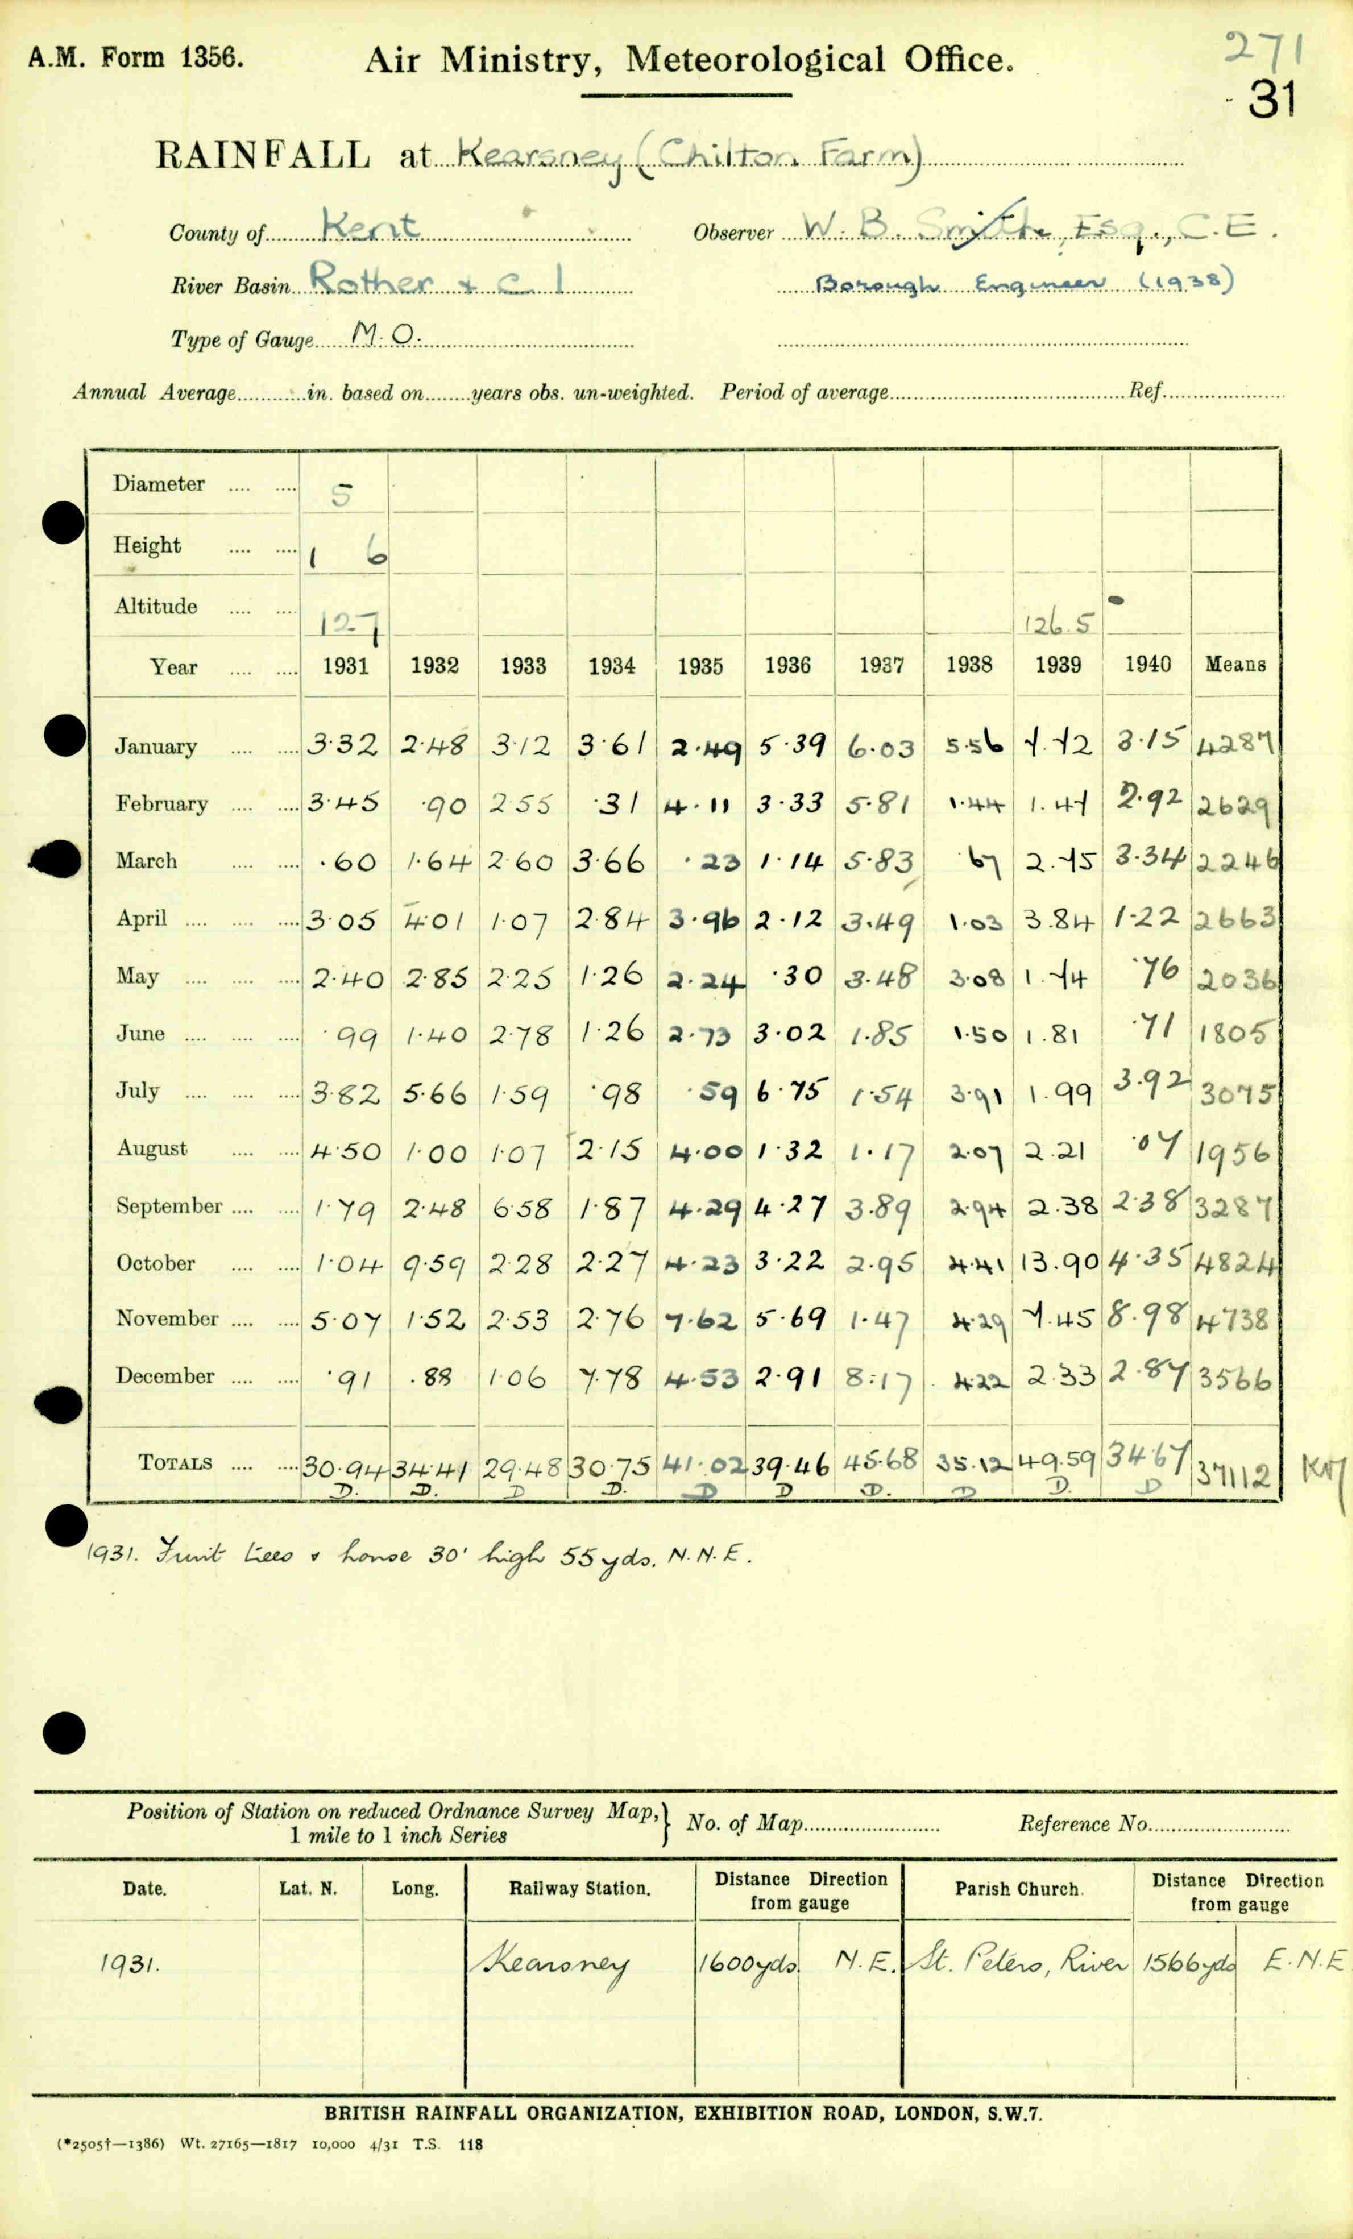 A.M. Form 1356.
Air Ministry, Meteorological Office.
271
31
RAINFALL at Kearsney (Chilton Farm)
County of Kent Observer W. B. Smith, Esq., C.E.
River Basin Rother & C. 1 Borough Engineer (1938)
Type of Gauge M.O.
Annual Average in. based on years obs. un-weighted. Period of average Ref.
Diameter 5
Height 1 6
Altitude 127 126.5
Year 1931 1932 1933 1934 1935 1936 1937 1938 1939 1940 Means
January 3.32 2.48 3.12 3.61 2.49 5.39 6.03 5.56 7.72 3.15 4287
February 3.45 .90 2.55 .31 4.11 3.33 5.81 1.44 1.47 2.92 2629
March .60 1.64 2.60 3.66 .23 1.14 5.83 .67 2.75 3.34 2246
April 3.05 4.01 1.07 2.84 3.96 2.12 3.49 1.03 3.84 1.22 2663
May 2.40 2.85 2.25 1.26 2.24 .30 3.48 3.08 1.74 .76 2036
June .99 1.40 2.78 1.26 2.73 3.02 1.85 1.50 1.81 .71 1805
July 3.82 5.66 1.59 .98 .59 6.75 1.54 3.91 1.99 3.92 3075
August 4.50 1.00 1.07 2.15 4.00 1.32 1.17 2.07 2.21 .07 1956
September 1.79 2.48 6.58 1.87 4.29 4.27 3.89 2.94 2.38 2.38 3287
October 1.04 9.59 2.28 2.27 4.23 3.22 2.95 4.41 13.90 4.35 4824
November 5.07 1.52 2.53 2.76 7.62 5.69 1.47 4.29 7.45 8.98 4738
December .91 .88 1.06 7.78 4.53 2.91 8.17 4.22 2.33 2.87 3566
TOTALS 30.94 34.41 29.48 30.75 41.02 39.46 45.68 35.12 49.59 34.67 37112
D. D. D D. D D D. D D. D
1931. Fruit trees & house 30' high 55 yds. N.N.E.
Position of Station on reduced Ordnance Survey Map, No. of Map Reference No.
1 mile to 1 inch Series
Date. Lat. N. Long. Railway Station. Distance Direction from gauge Parish Church. Distance Direction from gauge
1931. Kearsney 1600 yds. N.E. St. Peters, River 1566 yds E.N.E
BRITISH RAINFALL ORGANIZATION, EXHIBITION ROAD, LONDON, S.W.7.
(*2505†—1386) Wt. 27165—1817 10,000 4/31 T.S. 118